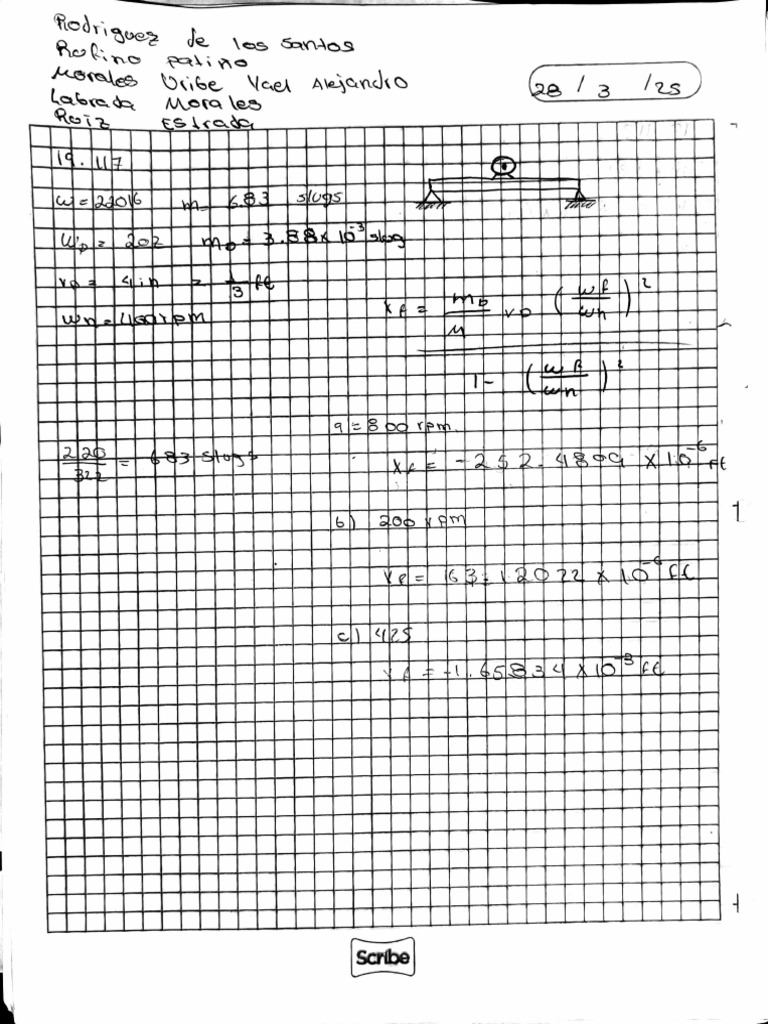 Rodriguez de los santos
Rufino patiño
Morales Uribe Yael Alejandro
Labrada Morales
Ruiz Estrada
28 / 3 / 25
19.117
w = 220lb m = 6.83 slugs
wp = 2oz mp = 3.88 x 10^-3 slug
rp = 4in = 1/3 ft
wn = 400rpm
xf = mp/M rp (wf/wn)^2
1 - (wf/wn)^2
a = 800 rpm.
220/32.2 = 6.83 slugs
xf = -252.4809 x 10^-6 ft
b) 200 rpm
xf = 63.12022 x 10^-6 ft
c) 425
xf = -1.65834 x 10^-3 ft
Scribe